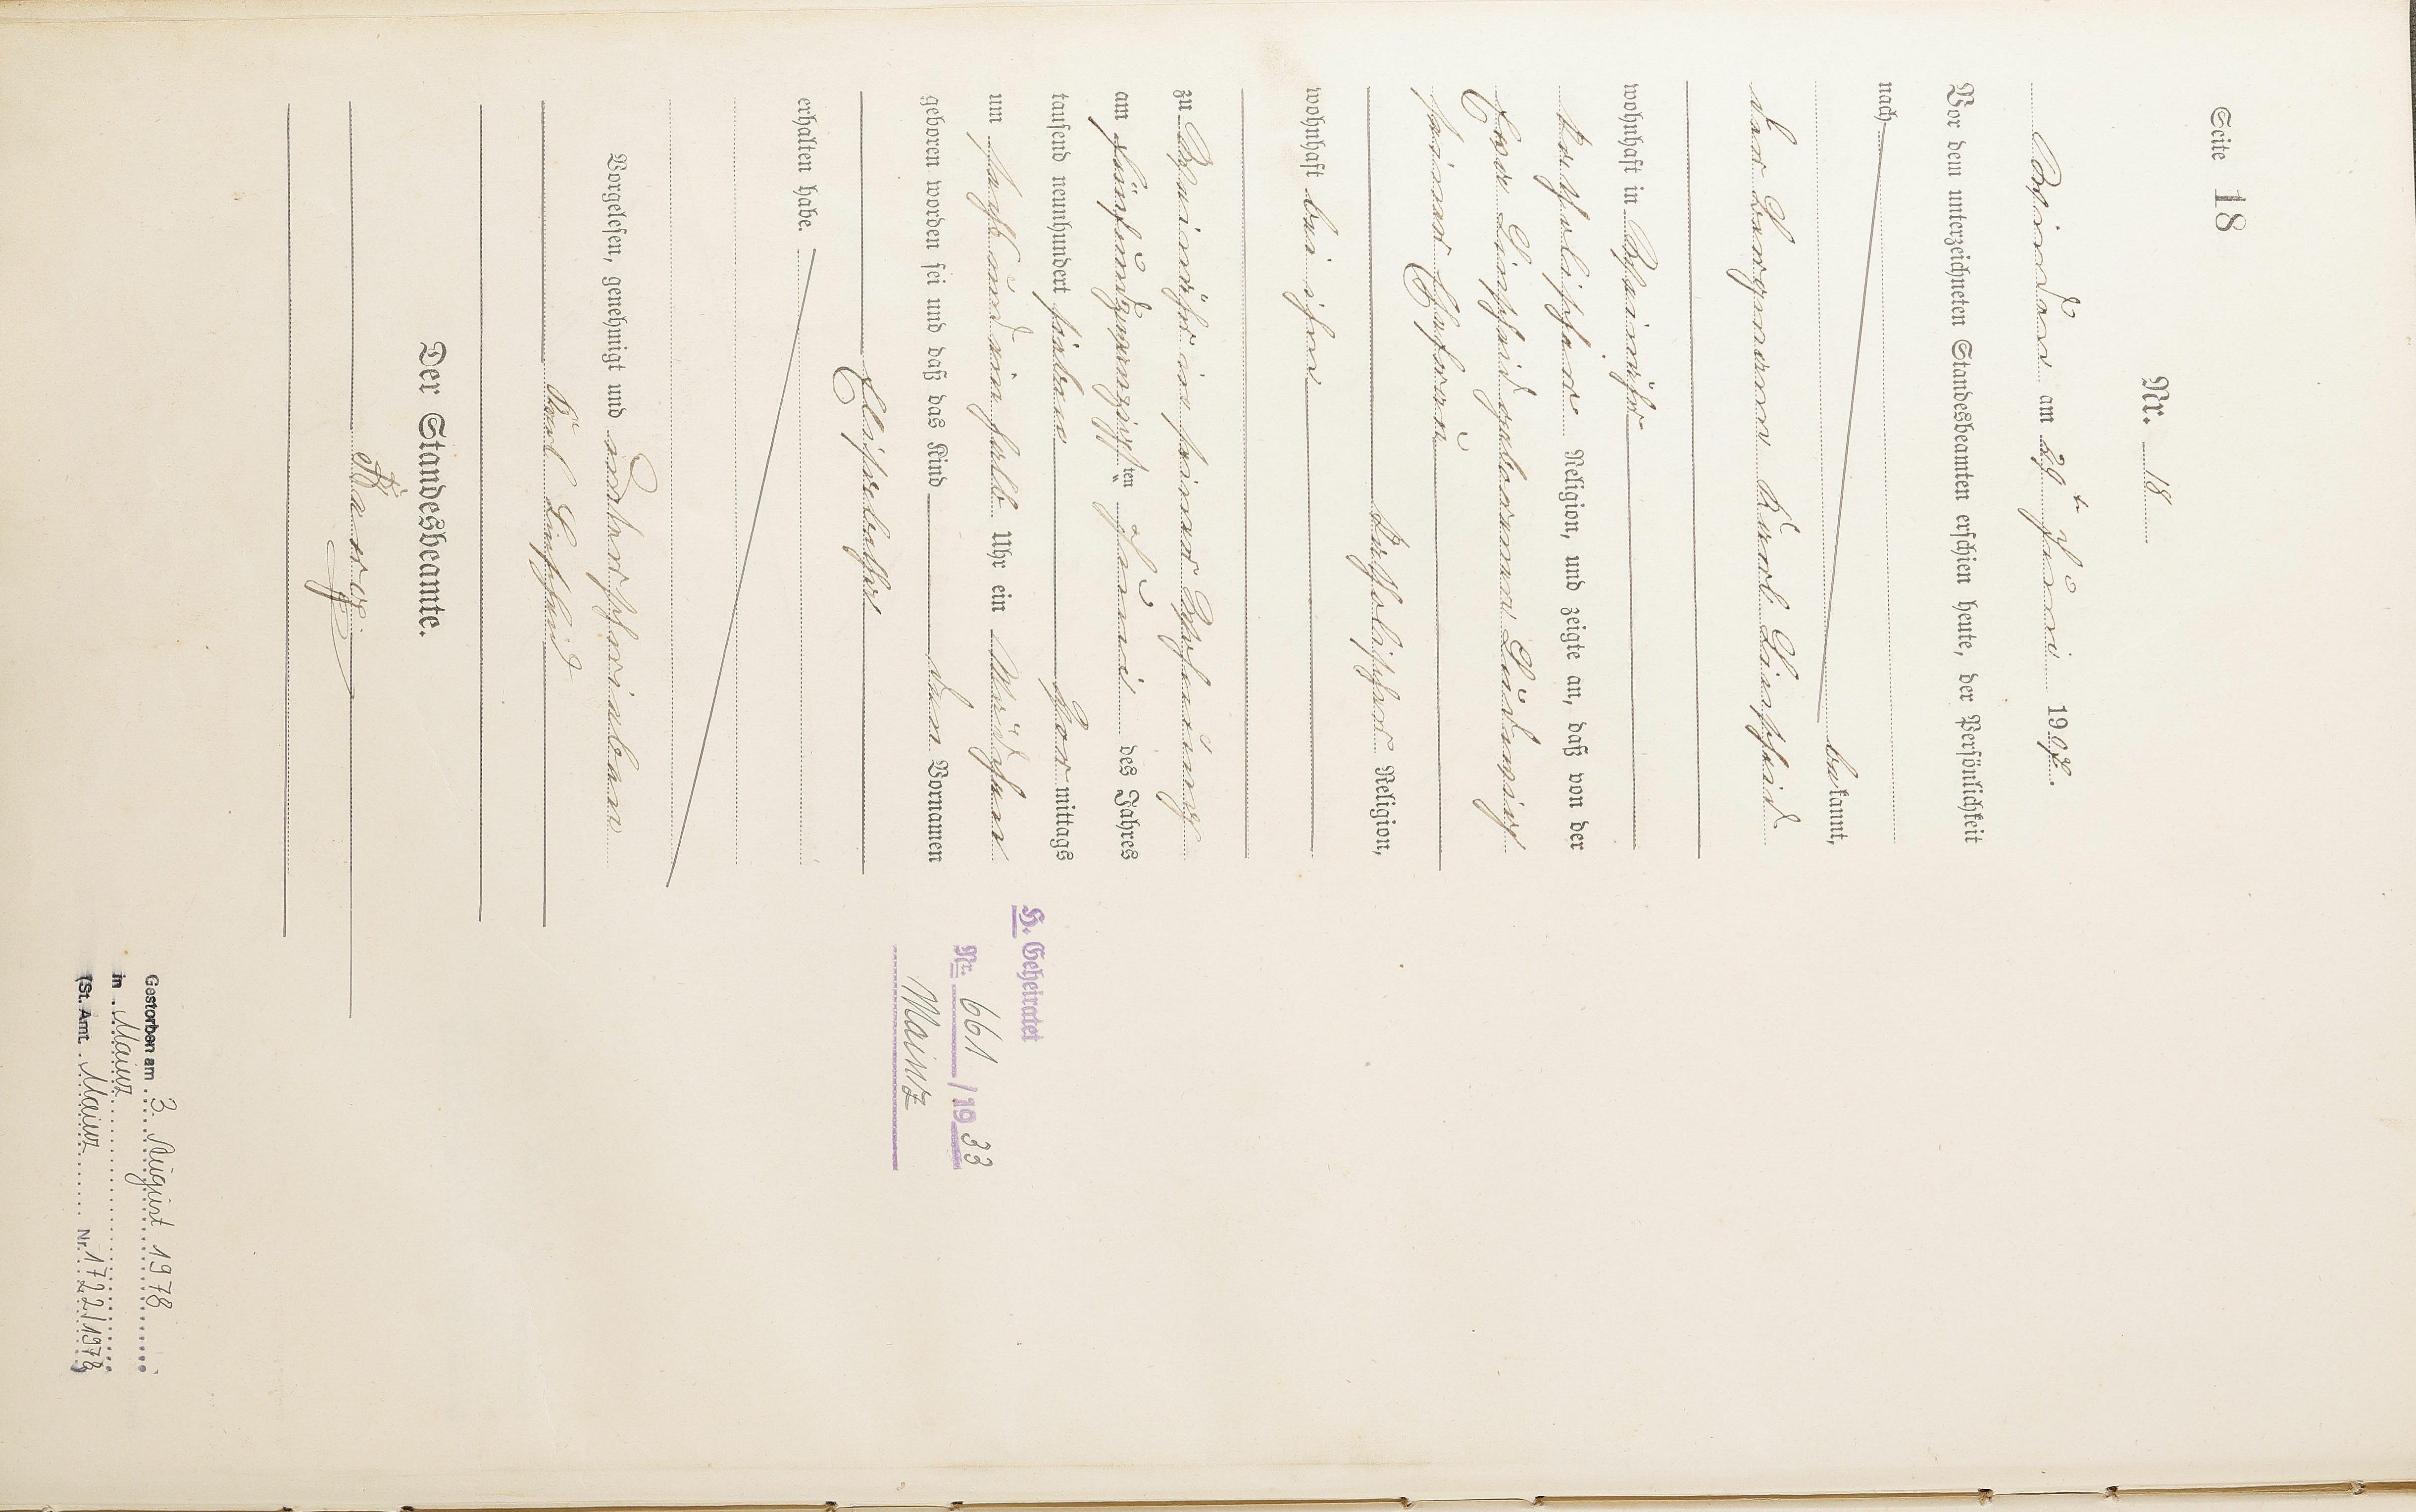 Seite 18
Nr. 18
Winden am 29t Juni 1907.
Vor dem unterzeichneten Standesbeamten erschien heute, der Persönlichkeit
nach
bekannt,
der Bergmann Karl Linscheid
wohnhaft in Weinähr
katholischer Religion, und zeigte an, daß von der
Eva Linscheid geborenen Ludwig
seiner Ehefrau
katholischer Religion,
wohnhaft bei ihm
zu Weinähr in seiner Wohnung
am fünfundzwanzigsten Juni des Jahres
tausend neunhundert sieben Vormittags
um sechs und ein halb Uhr ein Mädchen
geboren worden sei und daß das Kind den Vornamen
Elisabetha
erhalten habe.
Vorgelesen, genehmigt und unterschrieben
Karl Linscheid
Der Standesbeamte.
H. Geheiratet
Nr. 661/1933
Mainz
Gestorben am 3. August 1978
in Mainz
(St. Amt Mainz Nr. 1722/1978)